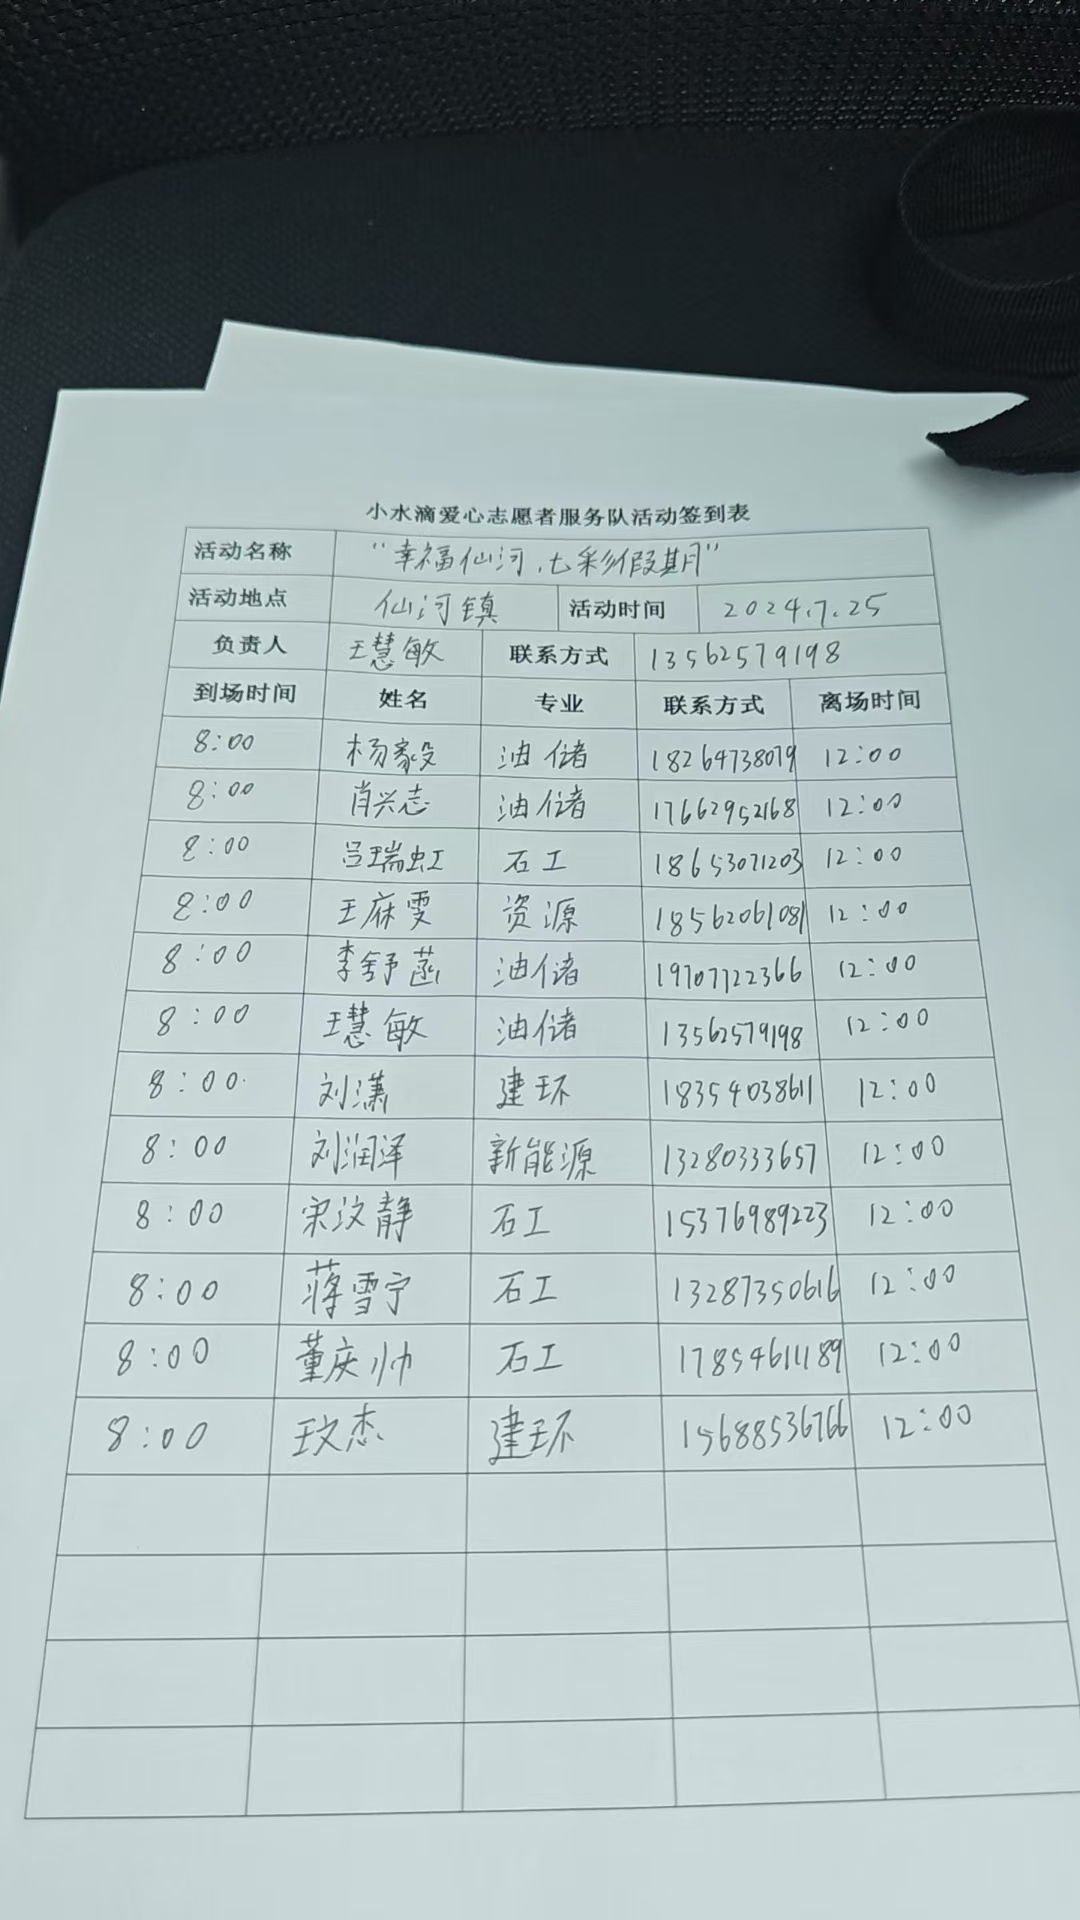 小水滴爱心志愿者服务队活动签到表
活动名称 "幸福仙河,七彩假期"
活动地点 仙河镇 活动时间 2024.7.25
负责人 王慧敏 联系方式 13562579198
到场时间 姓名 专业 联系方式 离场时间
8:00 杨家毅 油储 18264738079 12:00
8:00 肖兴志 油储 17662952168 12:00
8:00 吕瑞虹 石工 18653071203 12:00
8:00 王麻雯 资源 18562061081 12:00
8:00 李舒菡 油储 19707722366 12:00
8:00 王慧敏 油储 13562579198 12:00
8:00 刘潇 建环 18354038611 12:00
8:00 刘润泽 新能源 13280333657 12:00
8:00 宋汶静 石工 15376989223 12:00
8:00 蒋雪宁 石工 13287350616 12:00
8:00 董庆帅 石工 17854611189 12:00
8:00 王文杰 建环 15688536766 12:00